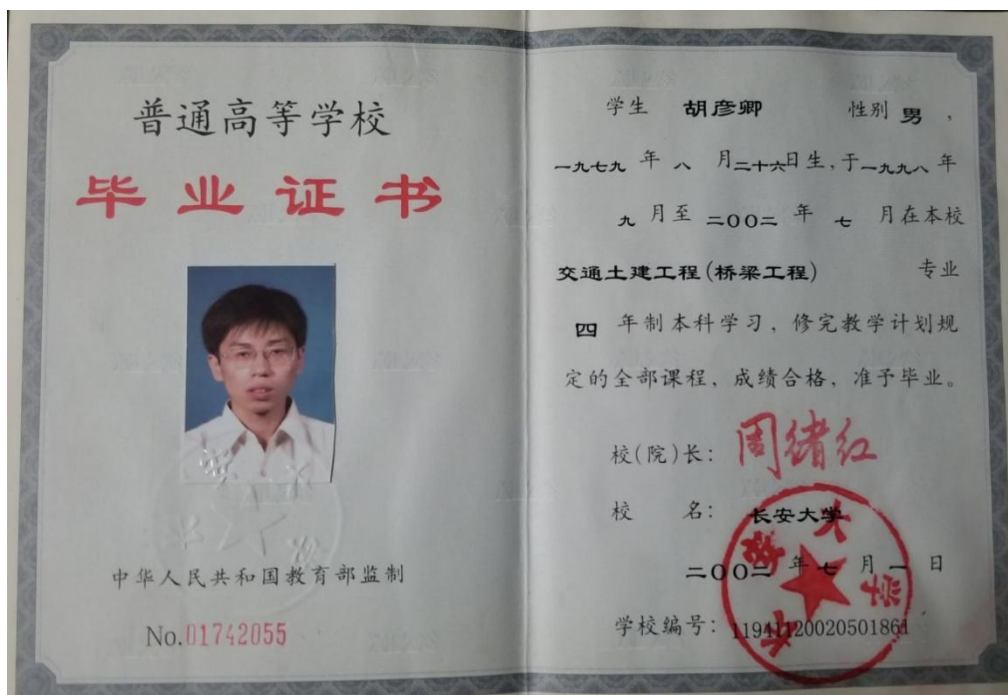 普通高等学校
毕业证书
中华人民共和国教育部监制
No.01742055
学生 胡彦卿 性别 男,
一九七九 年 八 月二十六日生,于一九九八年
九 月至 二〇〇二 年 七 月在本校
交通土建工程(桥梁工程) 专业
四 年制本科学习, 修完教学计划规
定的全部课程, 成绩合格, 准予毕业。
校(院)长: 周绪红
校 名: 长安大学
二〇〇二 年 七 月 一 日
学校编号: 11941120020501861